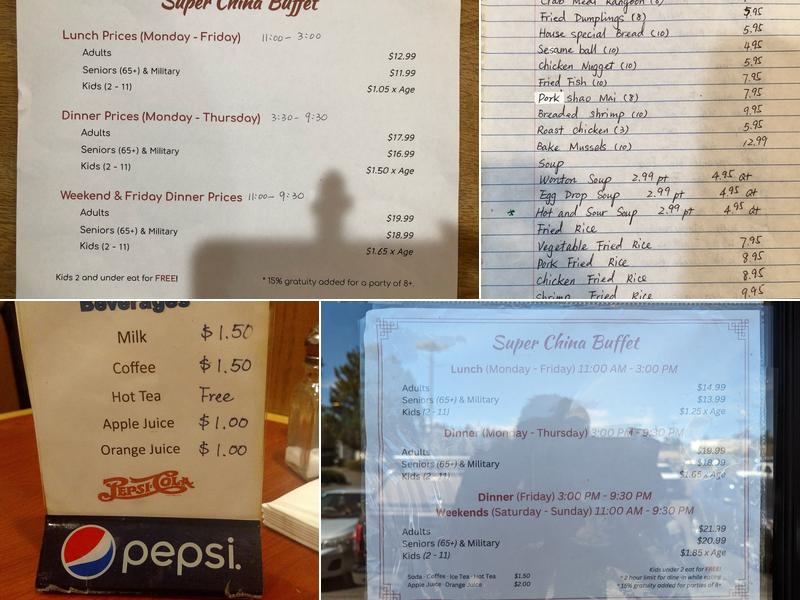 Super China Buffet
Lunch Prices (Monday - Friday) 11:00 - 3:00
Adults $12.99
Seniors (65+) & Military $11.99
Kids (2 - 11) $1.05 x Age
Dinner Prices (Monday - Thursday) 3:30 - 9:30
Adults $17.99
Seniors (65+) & Military $16.99
Kids (2 - 11) $1.50 x Age
Weekend & Friday Dinner Prices 11:00 - 9:30
Adults $19.99
Seniors (65+) & Military $18.99
Kids (2 - 11) $1.65 x Age
Kids 2 and under eat for FREE! * 15% gratuity added for a party of 8+.
Crab Meat Rangoon (8)
Fried Dumplings (8) 5.95
House special Bread (10) 5.95
Sesame ball (10) 4.95
Chicken Nugget (10) 5.95
Fried Fish (10) 7.95
Pork shao Mai (8) 7.95
Breaded shrimp (10) 9.95
Roast chicken (3) 5.95
Bake Mussels (10) 12.99
Soup
Wonton Soup 2.99 pt 4.95 Qt
Egg Drop Soup 2.99 pt 4.95 Qt
* Hot and Sour Soup 2.99 pt 4.95 Qt
Fried Rice
Vegetable Fried Rice 7.95
Pork Fried Rice 8.95
Chicken Fried Rice 8.95
Shrimp Fried Rice 9.95
Beverages
Milk $1.50
Coffee $1.50
Hot Tea Free
Apple Juice $1.00
Orange Juice $1.00
PEPSI-COLA
pepsi.
Super China Buffet
Lunch (Monday - Friday) 11:00 AM - 3:00 PM
Adults $14.99
Seniors (65+) & Military $13.99
Kids (2 - 11) $1.25 x Age
Dinner (Monday - Thursday) 3:00 PM - 9:30 PM
Adults $19.99
Seniors (65+) & Military $18.99
Kids (2 - 11) $1.65 x Age
Dinner (Friday) 3:00 PM - 9:30 PM
Weekends (Saturday - Sunday) 11:00 AM - 9:30 PM
Adults $21.99
Seniors (65+) & Military $20.99
Kids (2 - 11) $1.85 x Age
Kids under 2 eat for FREE!
Soda · Coffee · Ice Tea · Hot Tea $1.50
* 2 hour limit for dine-in while eating
Apple Juice · Orange Juice $2.00
* 15% gratuity added for parties of 8+